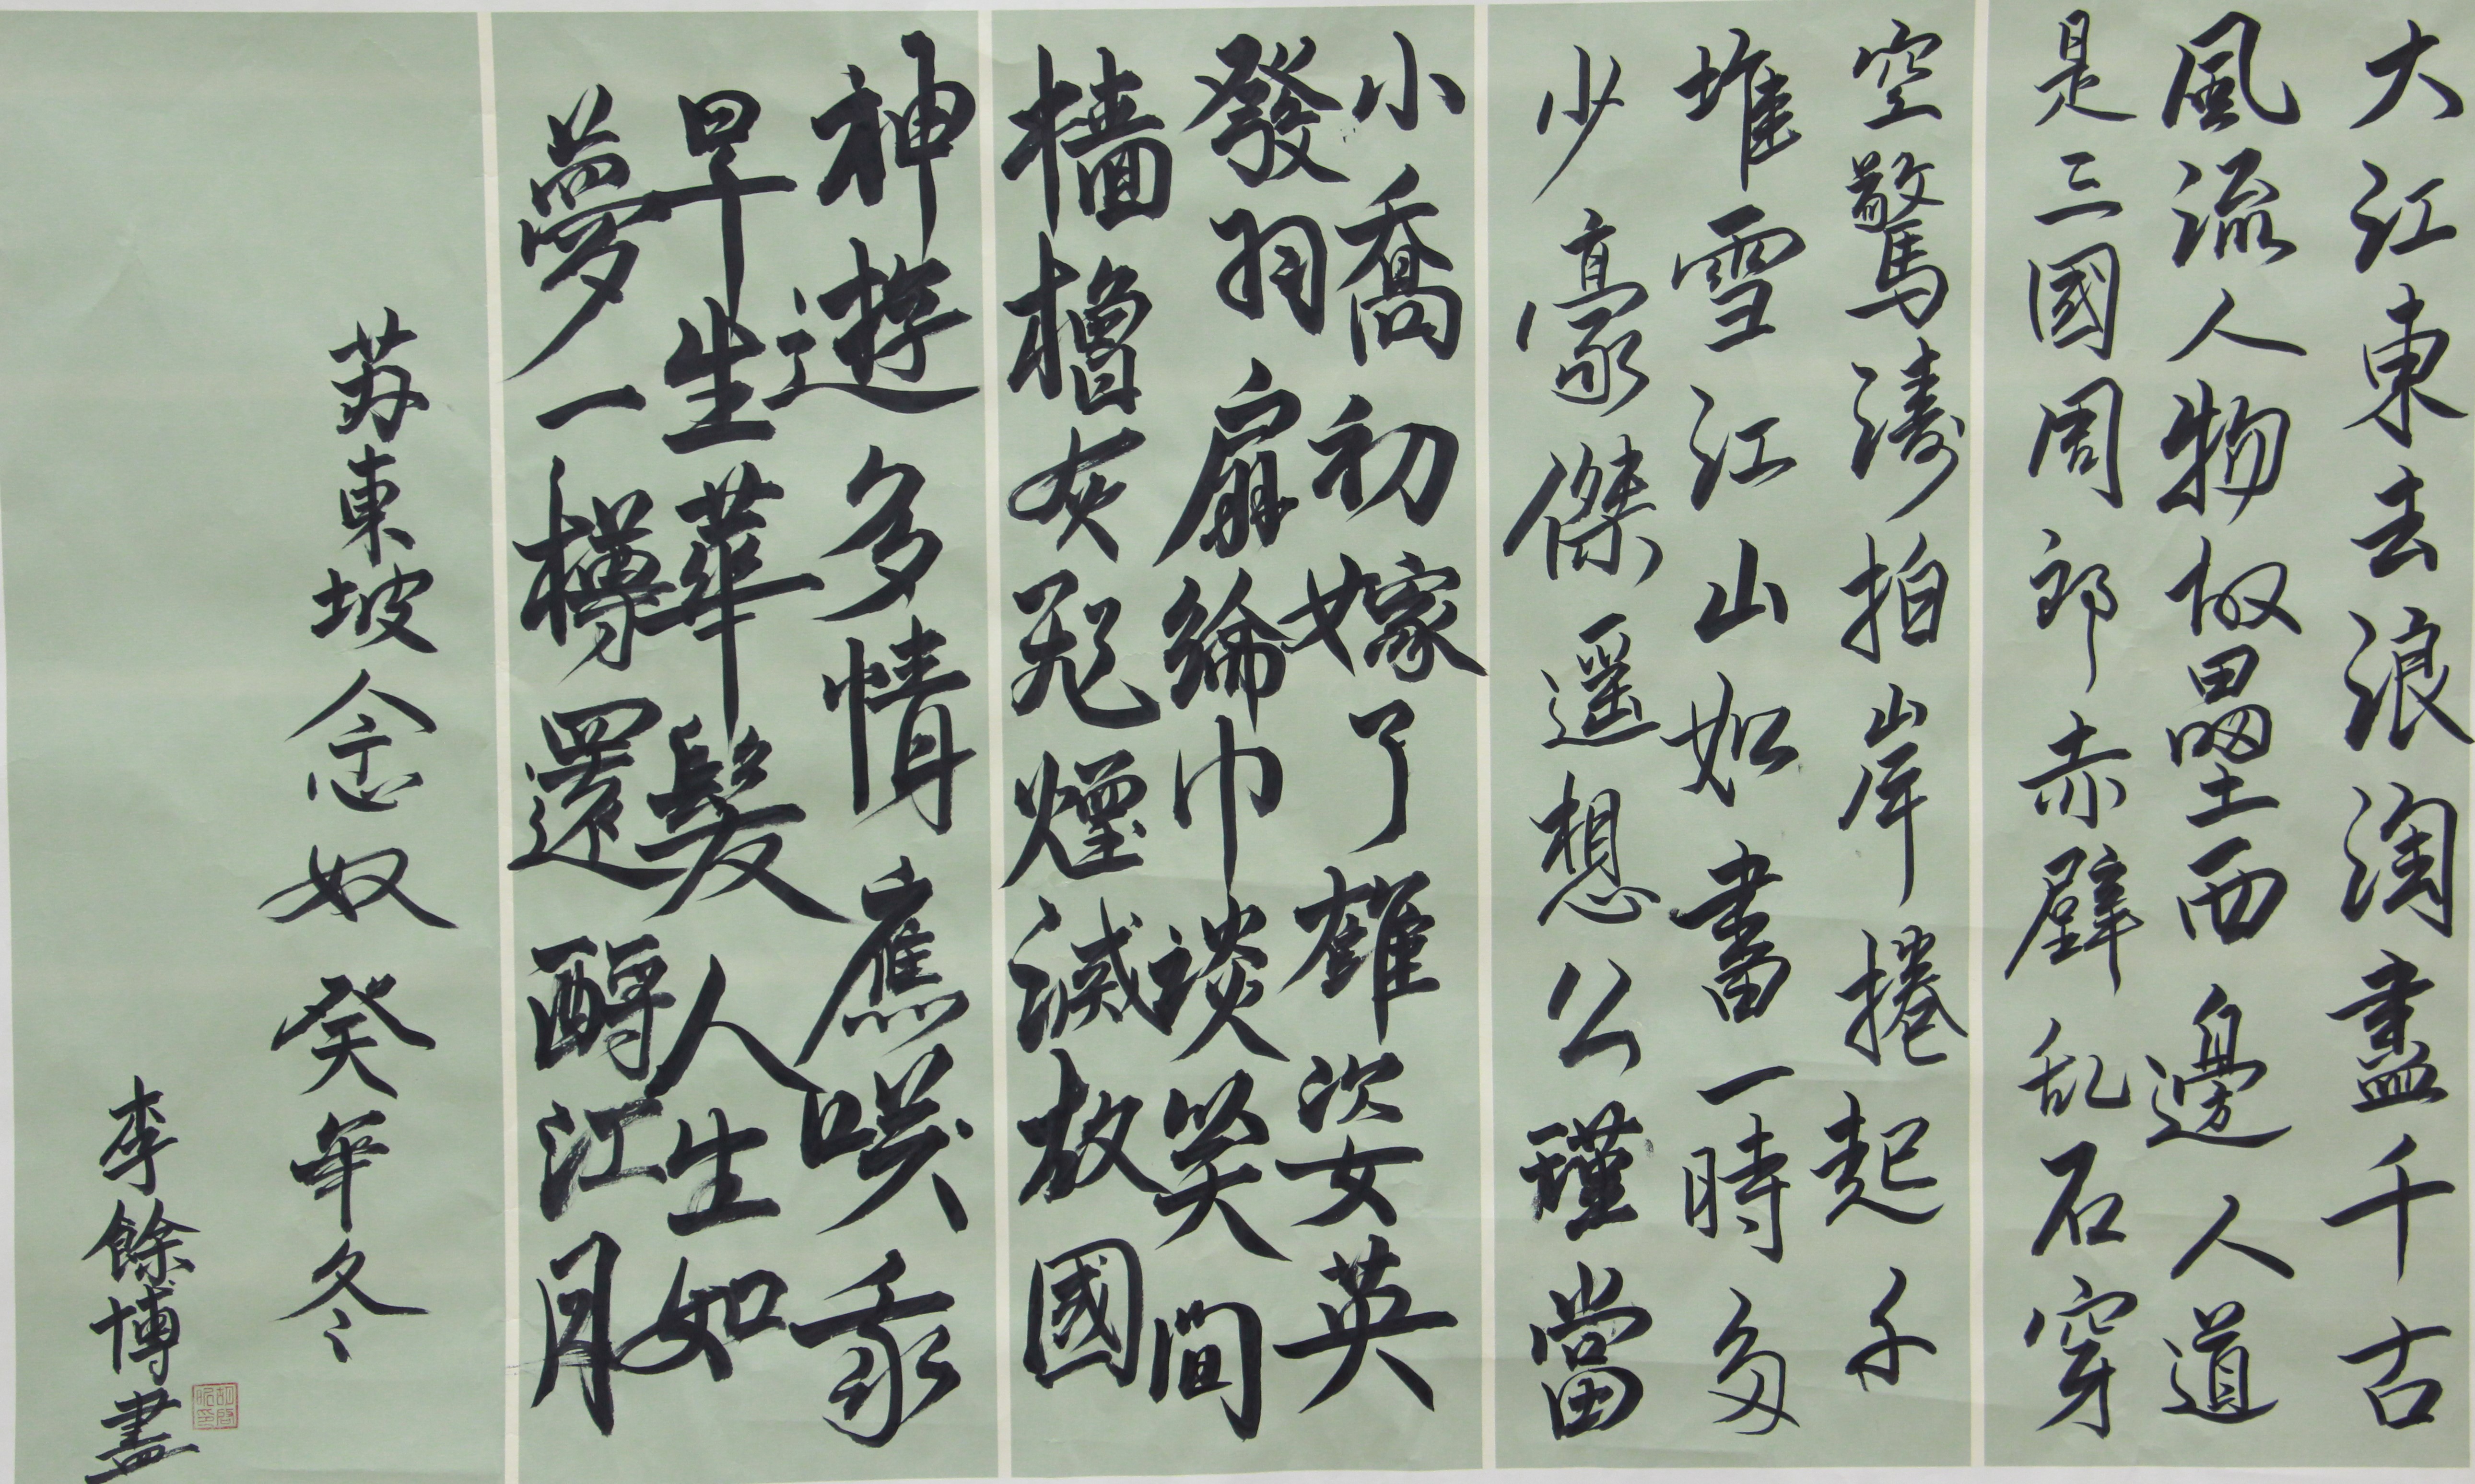 大江東去浪淘盡千古
風流人物故壘西邊人道
是三國周郎赤壁乱石穿
空驚濤拍岸捲起千
堆雪江山如畫一時多
少豪傑遥想公瑾當
小喬初嫁了雄姿英
發羽扇綸巾談笑間
檣櫓灰飛煙滅故國
神遊多情應咲我
早生華髮人生如
夢一樽還酹江月
苏東坡念奴癸年冬
李餘博